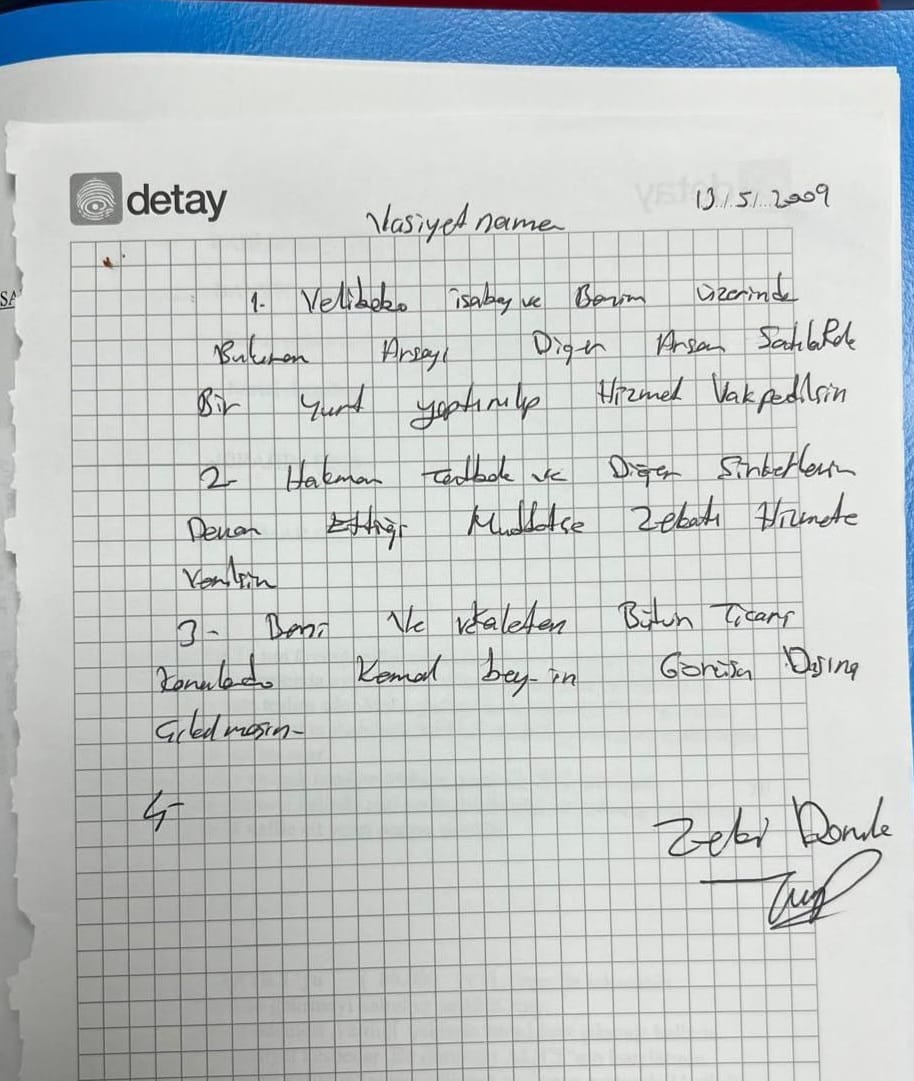 detay
13/5/2009
Vasiyet name
SA
1. Velibaba isabey ve Benim üzerinde
Bulunan Arsayı Diğer Arsan
Bir yurt yaptırılıp Hizmet Vakpedilsin
2- Hakman ve Diğer Şirketlerin
Devam Ettiği Muddetçe Zekatı Hizmete
Verilsin
3- Beni Ve vekaleten Bütün Ticari
Konularda Kemal bey-in Görüşü Dışına
Çıkılmasın-
4-
Zeki